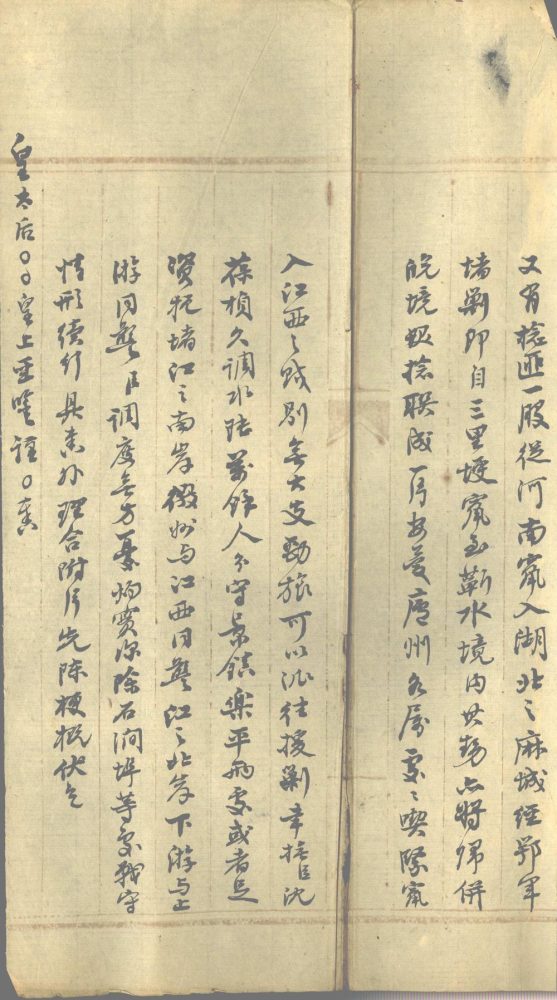 又有捻匪一股從河南竄入湖北之麻城經鄂軍
堵剿即自三里畈竄至蘄水境內其勢亦將歸併
皖境髮捻联成一片安慶廬州各属處處喫緊竄
入江西之賊別無大支勁旅可以派往援剿幸撫臣沈
葆楨久調水陸萬餘人分守景鎮樂平兩處或者足
資抵堵江之南岸徽州与江西同警江之北岸下游与上
游同警臣調度無方憂灼實深除石澗埠等處戰守
情形續行具奏外理合附片先陳梗概伏乞
皇太后〇〇皇上聖鑒謹〇奏